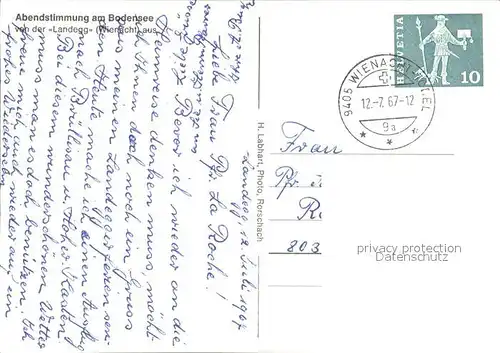 Abendstimmung am Bodensee
von der «Landegg» (Wienacht) aus
Landegg, 12. Juli 1967
Liebe Frau Pfr. La Roche!
Bevor ich wieder an die
Heimreise denken muss, möcht
ich Ihnen doch noch ein Gruss
aus meinen Landeggerferien sen-
den. Heute mache ich einen Ausflug
nach Brüllisau u. Hoher Kasten
Bei diesem wunderschönen Wetter
muss man es doch benützen. Ich
freue mich auch wieder auf ein
frohes Wiedersehn
H. Labhart, Photo, Rorschach
HELVETIA
10
9405 WIENACHT-TOBEL
12.-7.67-12
9a
Frau
Pfr.
803
privacy protection
Datenschutz